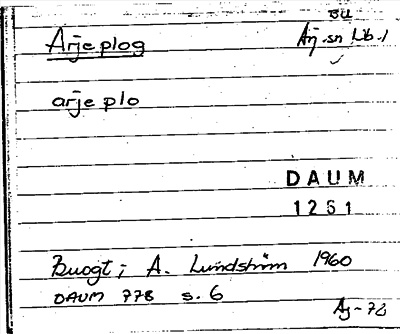 BU
Arjeplog
Arj. sn Lb.1
arjeplo
DAUM
1261
Buogt; A. Lundström 1960
DAUM 778 s. 6
Aj-78